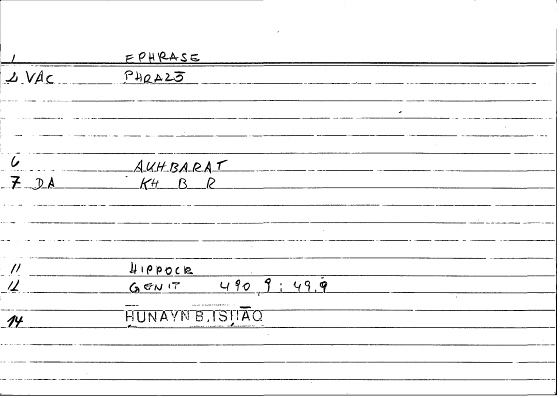 1 EPHRASE
2 VAC PHRAZŌ
6 AUHBARAT
7 DA KH B R
11 HIPPOCR
12 GENIT 490,9; 49,9
14 ḤUNAYN B. ISḤĀQ